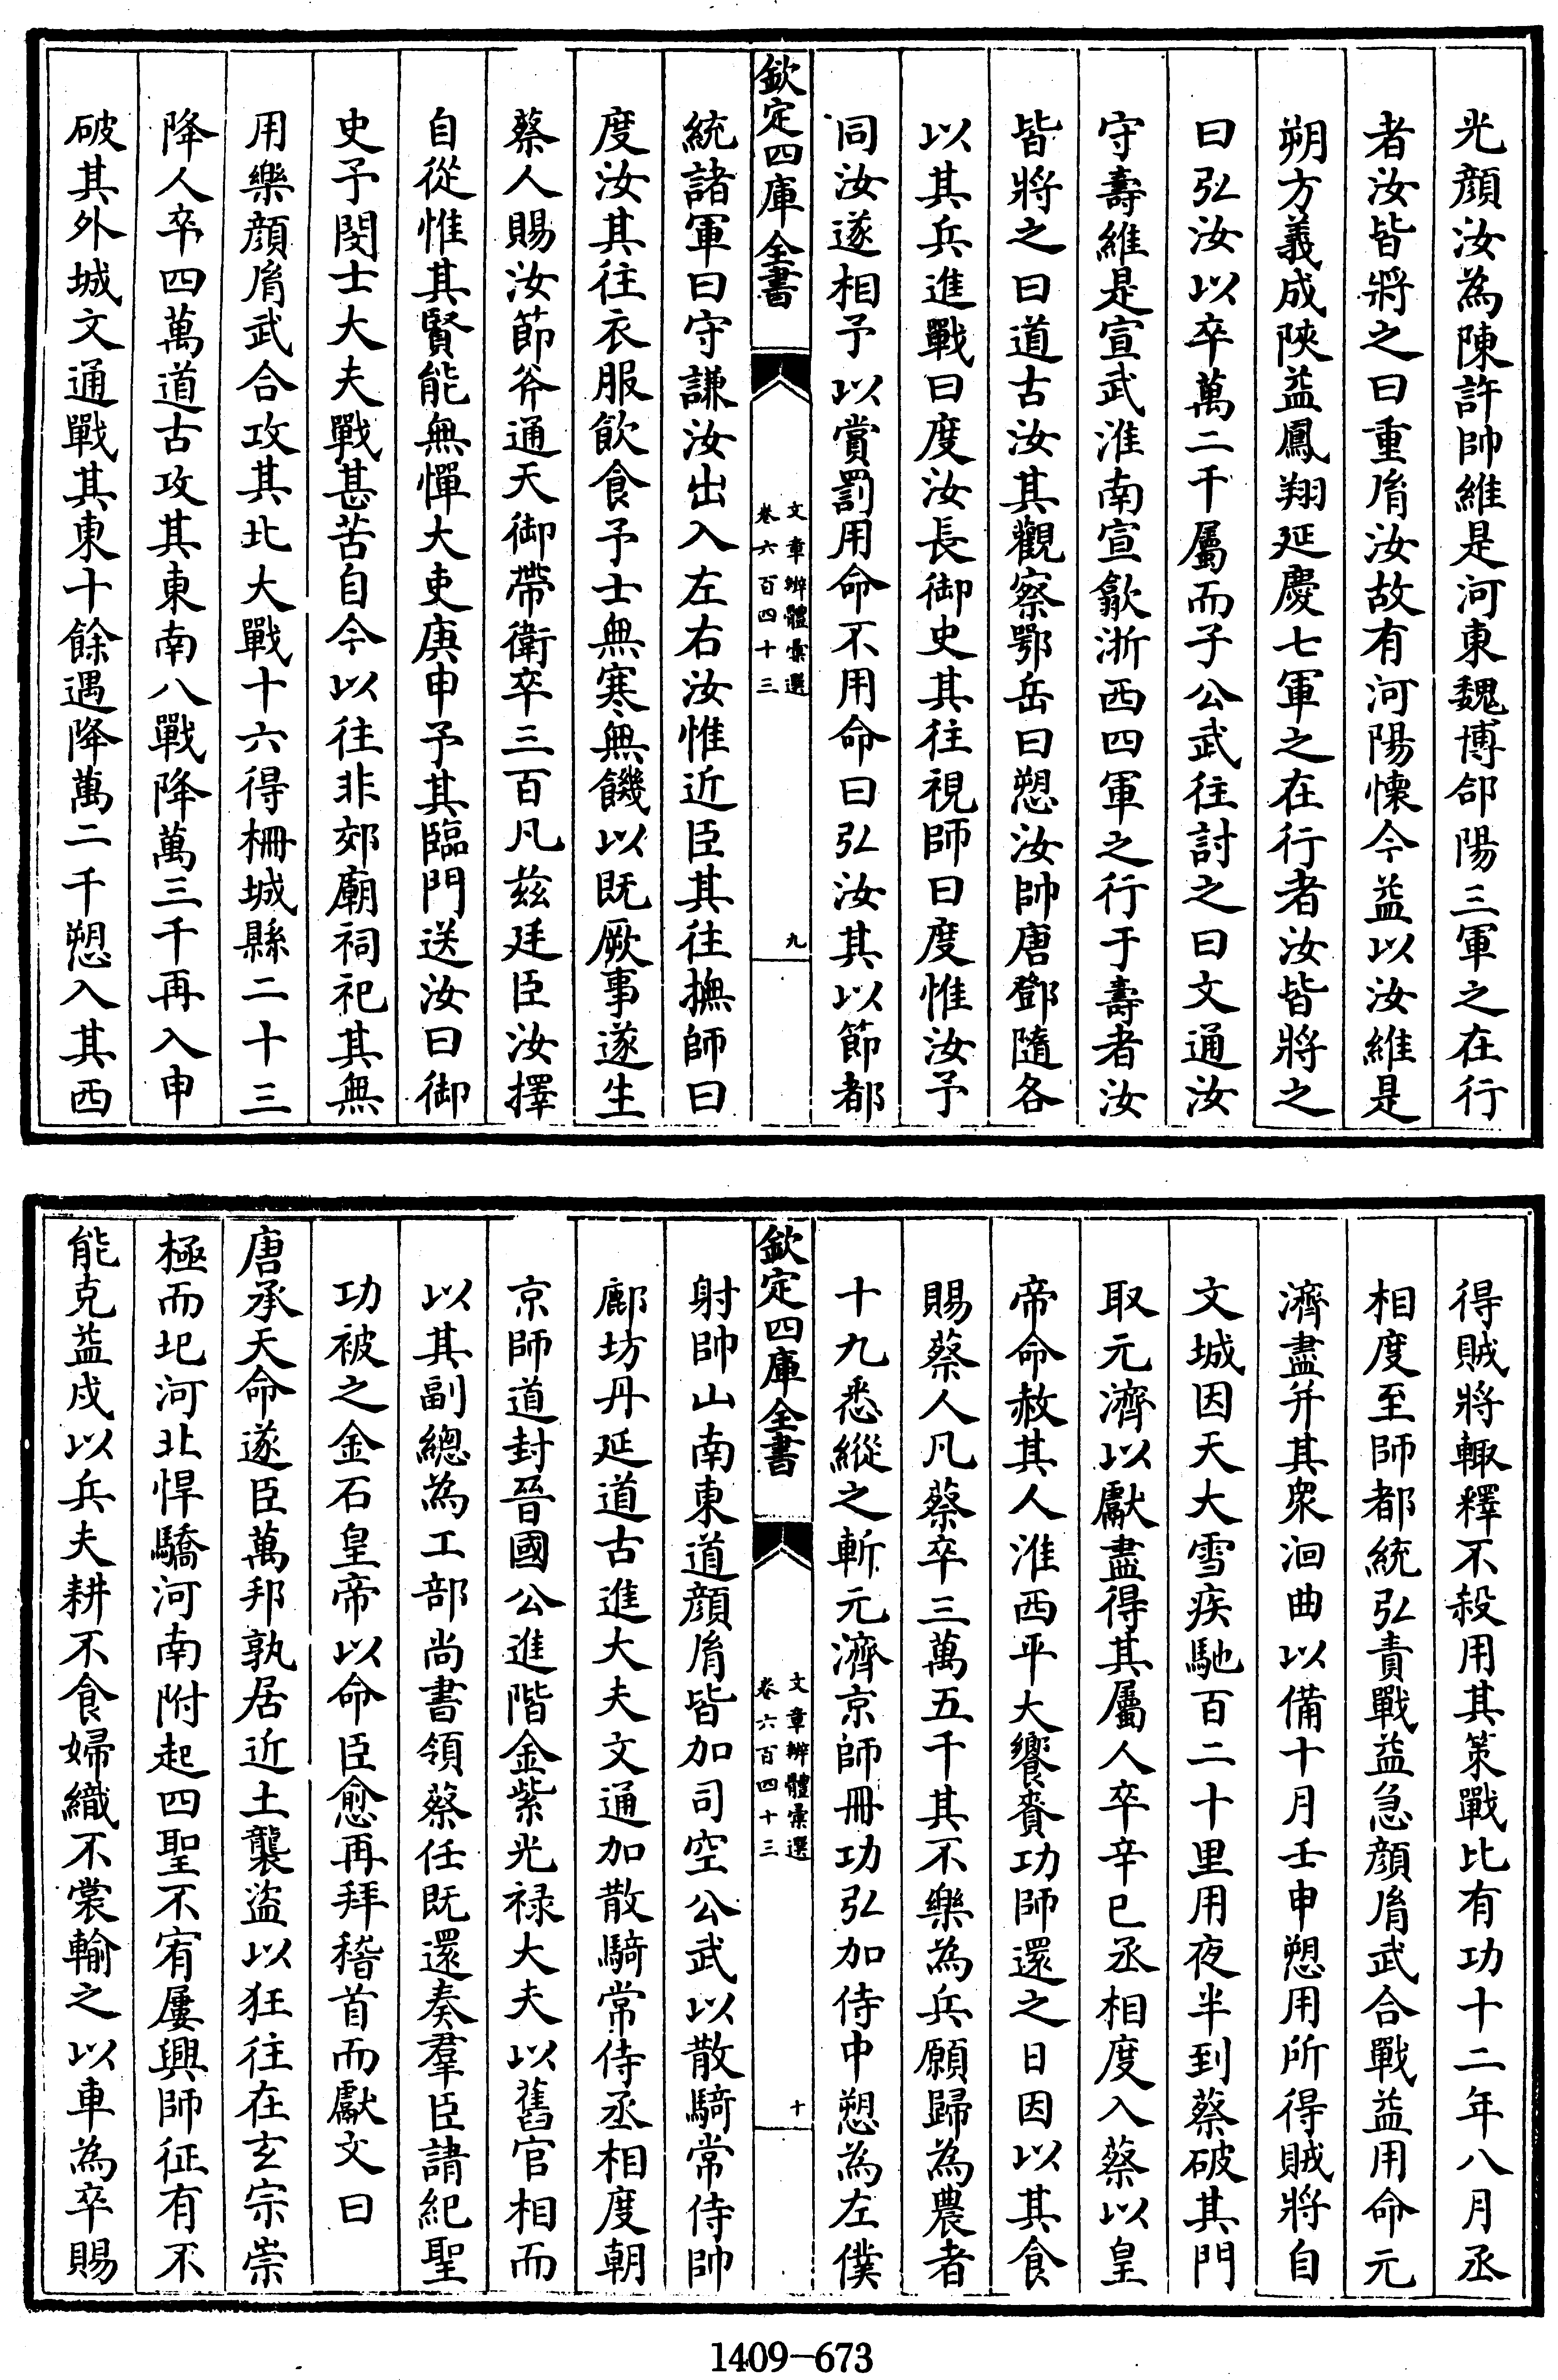 光顔汝為陳許帥維是河東魏博郃陽三軍之在行
者汝皆將之曰重𦙍汝故有河陽懷今益以汝維是
朔方義成陜益鳳翔延慶七軍之在行者汝皆將之
曰弘汝以卒萬二千屬而子公武往討之曰文通汝
守壽維是宣武淮南宣歙浙西四軍之行于壽者汝
皆將之曰道古汝其觀察鄂岳曰愬汝帥唐鄧隨各
以其兵進戰曰度汝長御史其往視師曰度惟汝予
同汝遂相予以賞罰用命不用命曰弘汝其以節都
欽定四庫全書
文章辨體彙選
卷六百四十三
九
統諸軍曰守謙汝出入左右汝惟近臣其往撫師曰
度汝其往衣服飲食予士無寒無饑以既厥事遂生
蔡人賜汝節斧通天御帶衛卒三百凡兹廷臣汝擇
自從惟其賢能無憚大吏庚申予其臨門送汝曰御
史予閔士大夫戰甚苦自今以往非郊廟祠祀其無
用樂顔𦙍武合攻其北大戰十六得柵城縣二十三
降人卒四萬道古攻其東南八戰降萬三千再入申
破其外城文通戰其東十餘遇降萬二千愬入其西
得賊將輙釋不殺用其策戰比有功十二年八月丞
相度至師都統弘責戰益急顔𦙍武合戰益用命元
濟盡并其衆洄曲以備十月壬申愬用所得賊將自
文城因天大雪疾馳百二十里用夜半到蔡破其門
取元濟以獻盡得其屬人卒辛巳丞相度入蔡以皇
帝命赦其人淮西平大饗賚功師還之日因以其食
賜蔡人凡蔡卒三萬五千其不樂為兵願歸為農者
十九悉縱之斬元濟京師冊功弘加侍中愬為左僕
欽定四庫全書
文章辨體彙選
卷六百四十三
十
射帥山南東道顔𦙍皆加司空公武以散騎常侍帥
鄜坊丹延道古進大夫文通加散騎常侍丞相度朝
京師道封晉國公進階金紫光禄大夫以舊官相而
以其副總為工部尚書領蔡任既還奏羣臣請紀聖
功被之金石皇帝以命臣愈臣愈再拜稽首而獻文曰
唐承天命遂臣萬邦孰居近土襲盗以狂往在玄宗崇
極而圮河北悍驕河南附起四聖不宥屢興師征有不
能克益戍以兵夫耕不食婦織不裳輸之以車為卒賜
1409-673